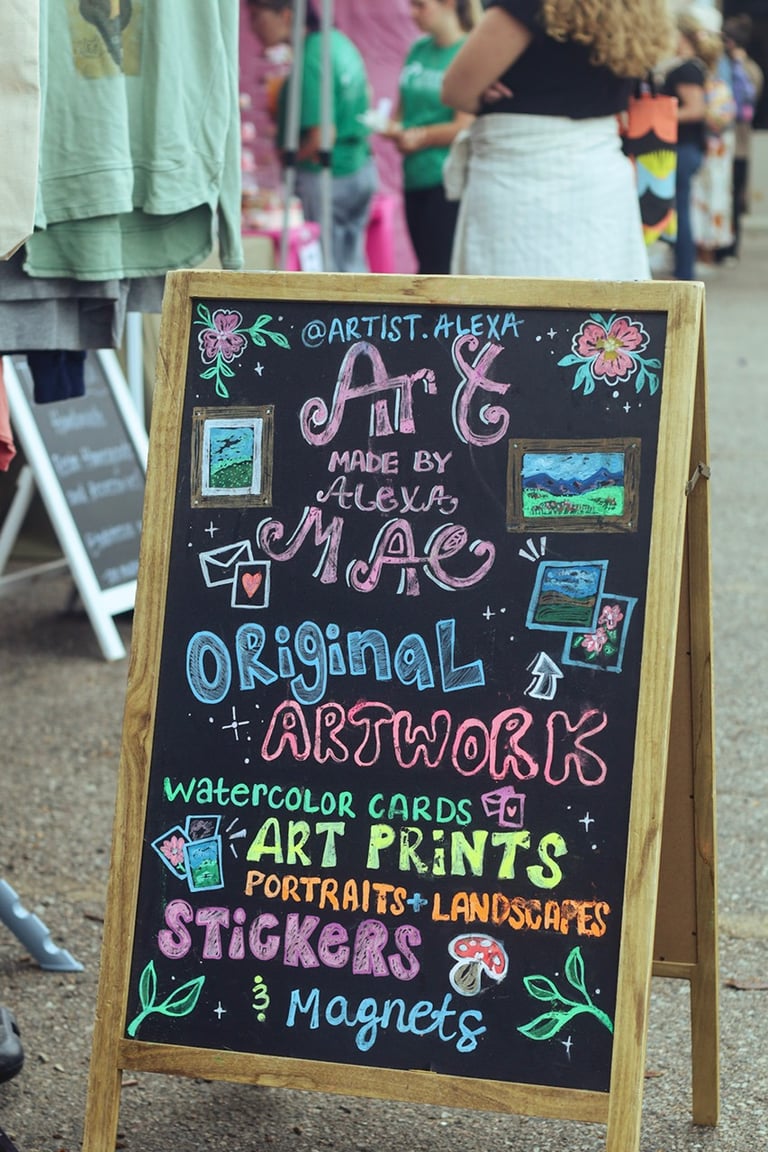 @ARTIST.ALEXA
Art
MADE BY
ALEXA
MAE
ORiginaL
ARTWORK
watercoloR CARDS
ART PRiNTS
PORTRAITS + LANDSCAPES
STiCKERS
& Magnets